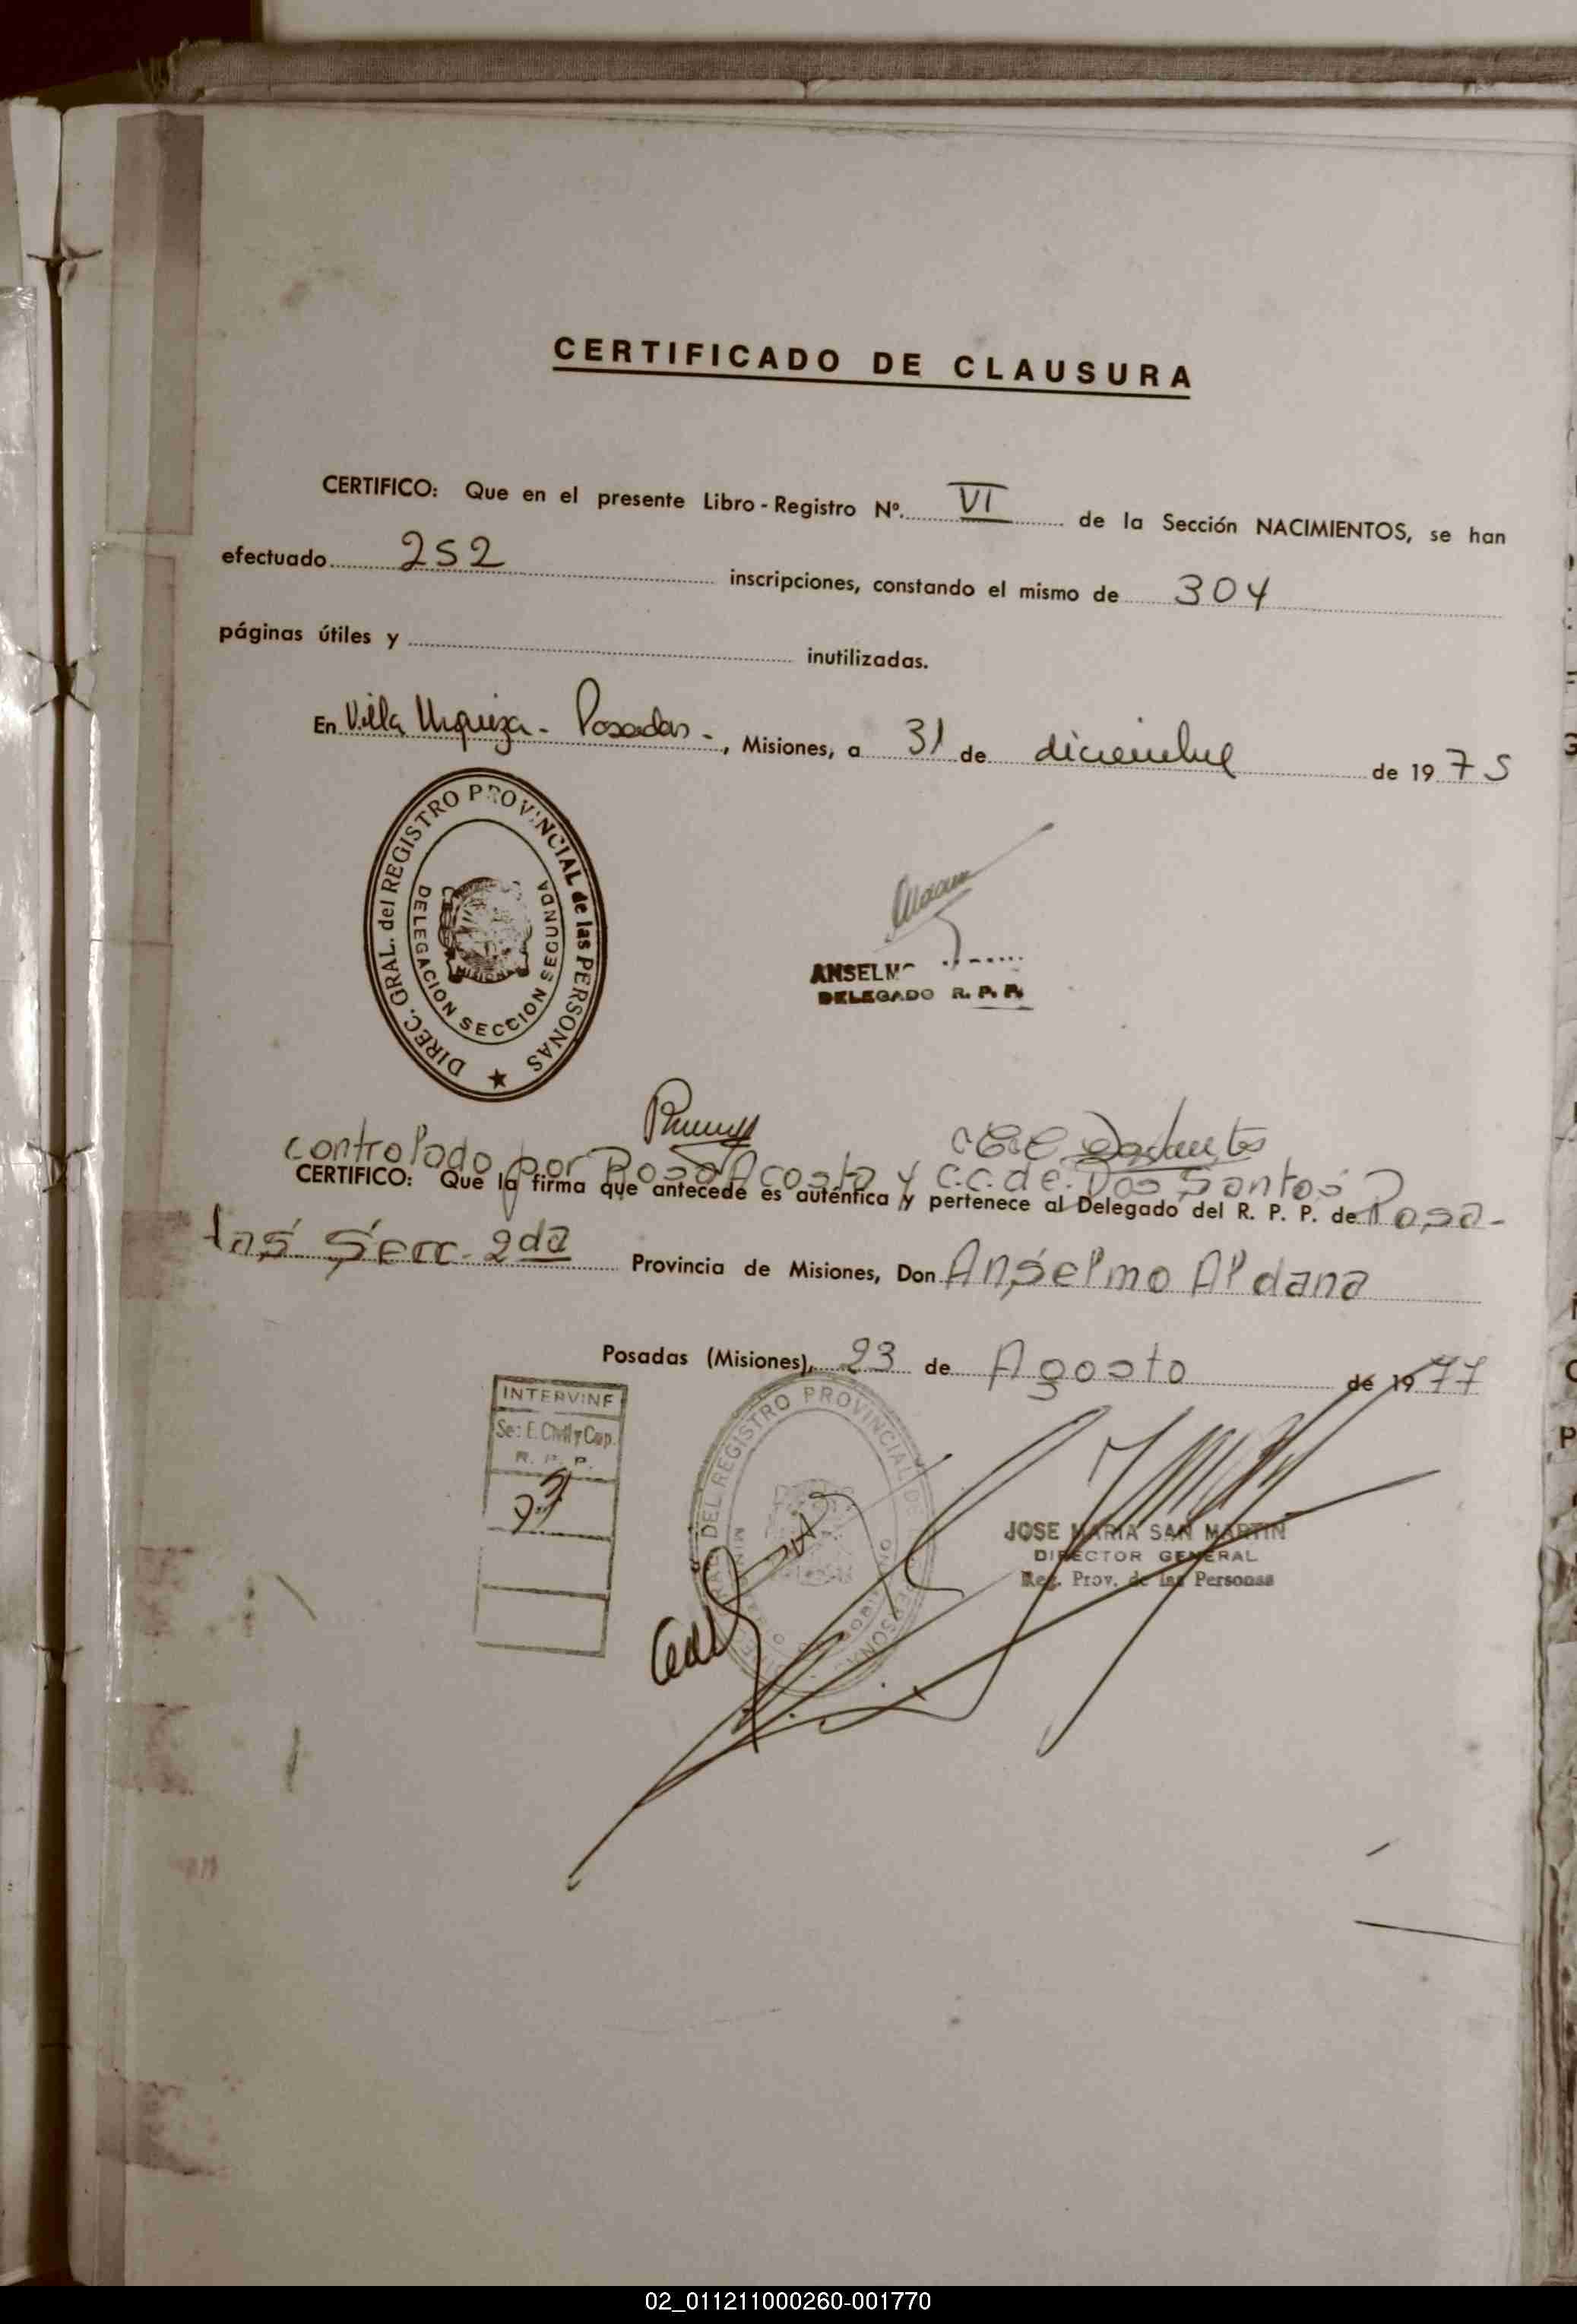 CERTIFICADO DE CLAUSURA
CERTIFICO: Que en el presente Libro - Registro Nº. VI de la Sección NACIMIENTOS, se han
efectuado 252 inscripciones, constando el mismo de 304
páginas útiles y inutilizadas.
En Villa Urquiza - Posadas -, Misiones, a 31 de diciembre de 1975
DIREC. GRAL. del REGISTRO PROVINCIAL de las PERSONAS
DELEGACION SECCION SEGUNDA
MISIONES
ANSELMO
DELEGADO R. P. P.
controlado por Rosa Acosta y C.C. de Dos Santos
CERTIFICO: Que la firma que antecede es auténtica y pertenece al Delegado del R. P. P. de Posa-
das Secc. 2da Provincia de Misiones, Don Anselmo Aldana
Posadas (Misiones), 23 de Agosto de 1977
INTERVINE
Sec. E. Civil y Cap.
R. P. P.
REGISTRO PROVINCIAL DE
JOSE MARIA SAN MARTIN
DIRECTOR GENERAL
Reg. Prov. de las Personas
02_011211000260-001770